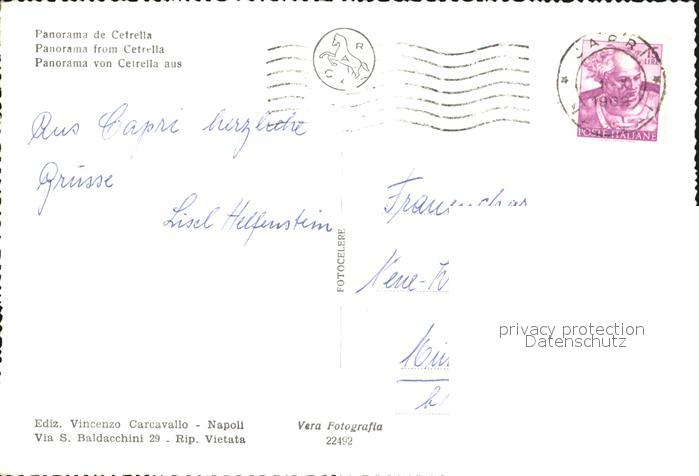 Panorama de Cetrella
Panorama from Cetrella
Panorama von Cetrella aus
CAPRI
15
LIRE
POSTE ITALIANE
Aus Capri herzliche
Grüsse
Lisel Helfenstein
FOTOCELERE
Frauenchor
Nene-
privacy protection
Datenschutz
Ediz. Vincenzo Carcavallo - Napoli
Via S. Baldacchini 29 - Rip. Vietata
Vera Fotografia
22492